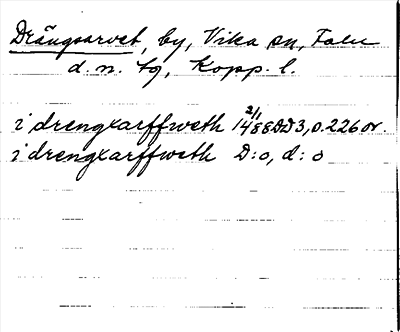 Drängsarvet, by, Vika sn, Falu
d. n. tg, Kopp. l.
i drengxarffweth 21/1 1488 DD3, o. 226 or.
i drengxarffweth D:o, d:o